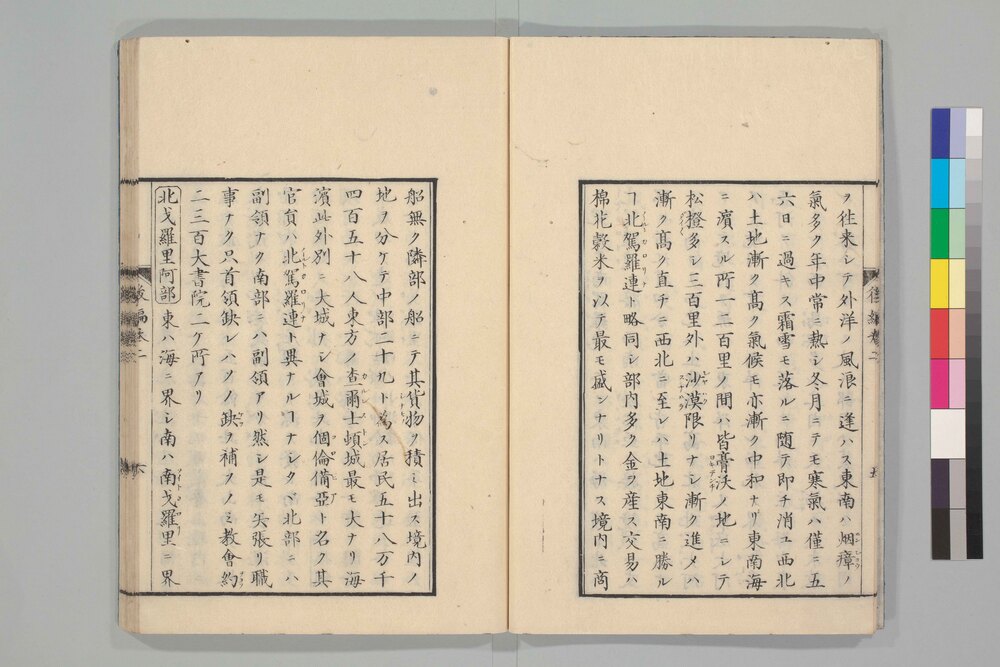 ヲ徃来シテ外洋ノ風浪ニ逢ハス東南ハ烟瘴ノ
氣多ク年中常ニ熱シ冬月ニテモ寒氣ハ僅ニ五
六日ニ過キス霜雪モ落ルニ随テ即チ消ユ西北
ハ土地漸ク高ク氣候モ亦漸ク中和ナリ東南海
ニ濱スル所一二百里ノ間ハ皆膏沃ノ地ニシテ
松橙多シ三百里外ハ沙漠限リナシ漸ク進メハ
漸ク高ク直チニ西北ニ至レハ土地東南ニ勝ル
ヿ北駕羅連ト略同シ部内多ク金ヲ産ス交易ハ
棉花穀米ヲ以テ最モ盛ンナリトナス境内ニ商
船無ク隣部ノ船ニテ其貨物ヲ積ミ出ス境内ノ
地ヲ分ケテ中部二十九ト為ス居民五十八万千
四百五十八人東方ノ査爾士頓城最モ大ナリ海
濱此外別ニ大城ナシ會城ヲ個倫備亞ト名ク其
官員ハ北駕羅連ト異ナルヿナシ只北部ニハ
副領ナク南部ニハ副領アリ然シ是モ矢張リ職
事ナク只首領缺レハ其ノ缺ヲ補フノミ教會約
二三百大書院二ケ所アリ
北戈羅里阿部 東ハ海ニ界シ南ハ南戈羅里ニ界